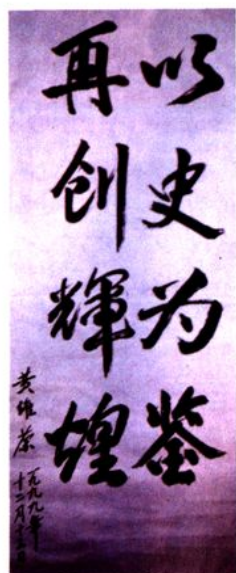 以史为鉴
再创輝煌
黄维荣
一九九九年
十二月十六日